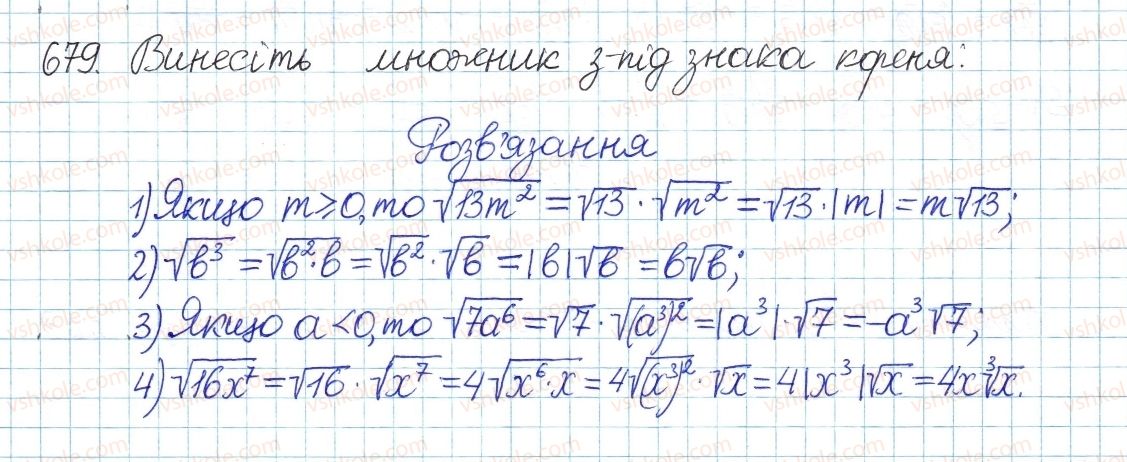 679. Винесіть множник з-під знака кореня:
Розв'язання
1) Якщо m≥0, то √(13m²) = √13 · √(m²) = √13 · |m| = m√13;
2) √(b³) = √(b²·b) = √(b²) · √b = |b|√b = b√b;
3) Якщо a<0, то √(7a⁶) = √7 · √((a³)²) = |a³| · √7 = -a³√7;
4) √(16x⁷) = √16 · √(x⁷) = 4√(x⁶·x) = 4√((x³)²) · √x = 4|x³|√x = 4x³√x.